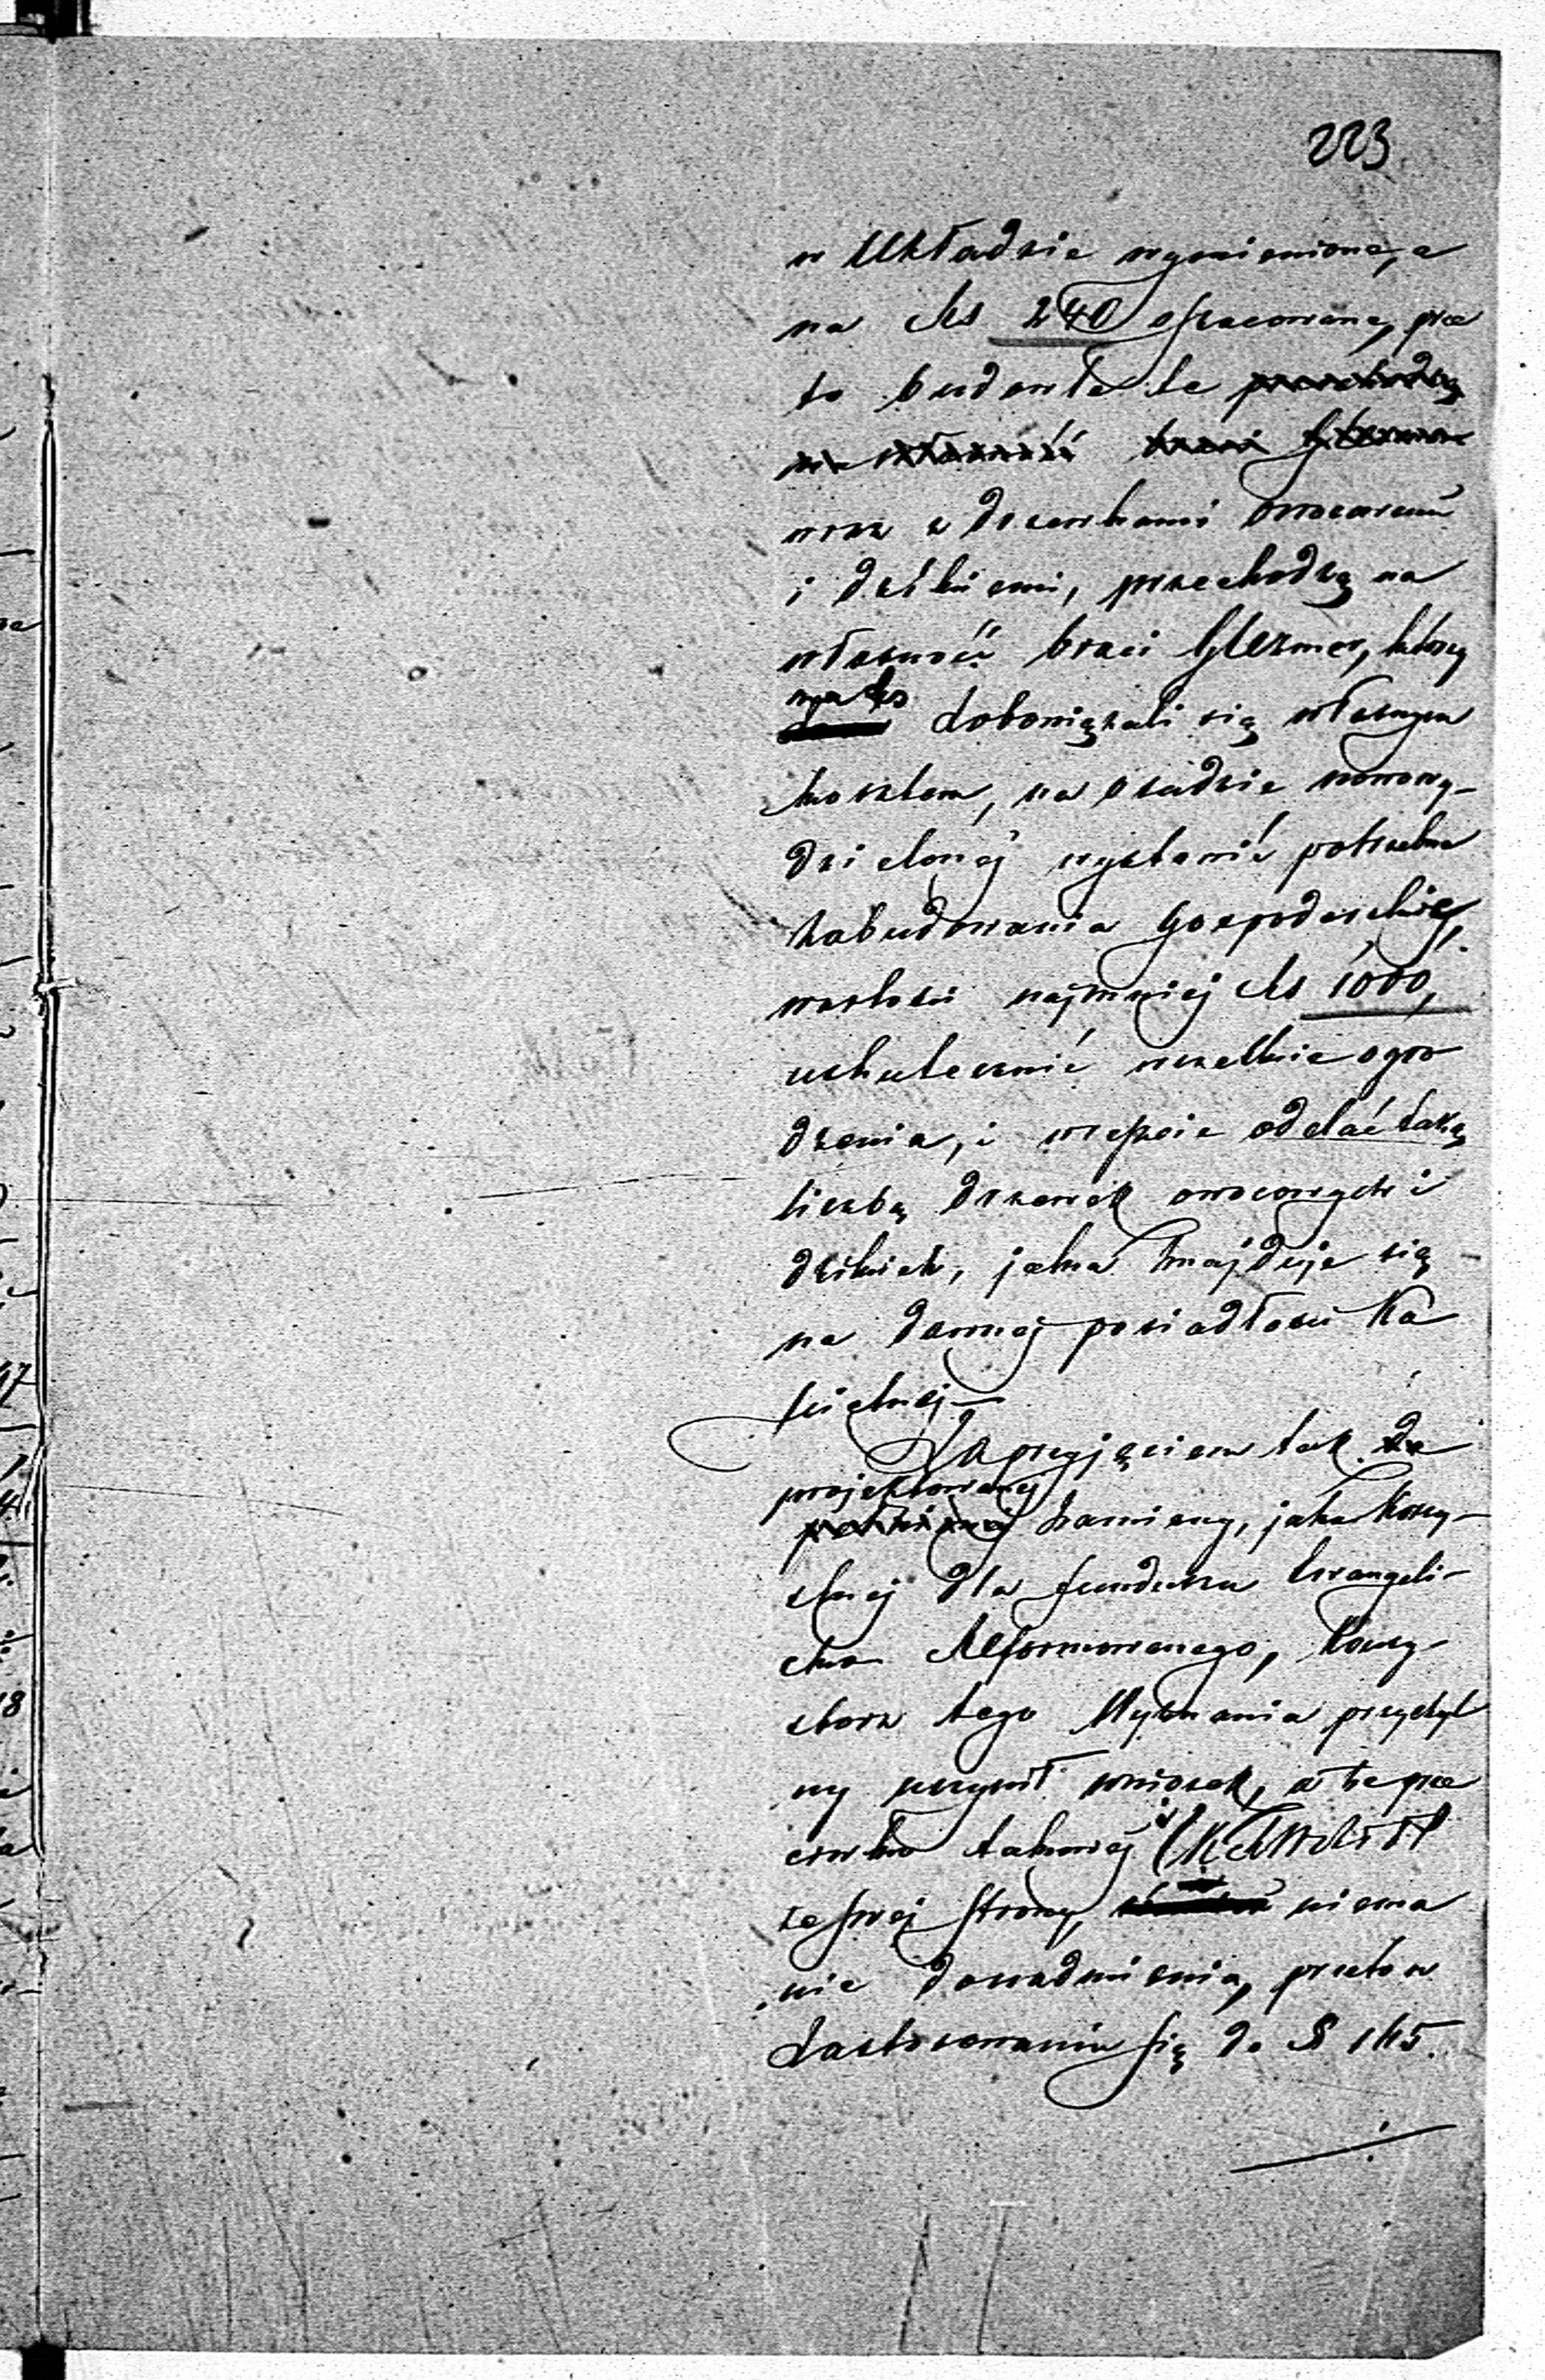 223
w Układzie wymienione, a
na Rs 240 oszacowane, prze
to budowle te przechodzą
na własność braci Glezmer
wraz z drzewkami owocowemi
i dzikiemi, przechodzą na
własność braci Glezmer, którzy
zobowiązali się własnym
kosztem, na osadzie nowowy-
dzielonej wystawić potrzebne
zabudowania Gospodarskie,
wartości najmniej Rs 1000,
uskutecznić wszelkie ogro
dzenia, i wreszcie oddać taką
liczbę drzewek owocowych i
dzikich, jaka znajduje się
na dawnej posiadłości Ko
ścielnej.
Za przyjęciem tak
projektowanej
zamiany, jako korzy-
stnej dla funduszu Ewangeli-
cko Reformowanego, Konsy-
storz tego Wyznania przychyl
ny uczynił wniosek, a że prze
ciwko takowej i
ze swej strony, niema
nic do nadmienienia, przeto w
zastosowaniu się do § 145.